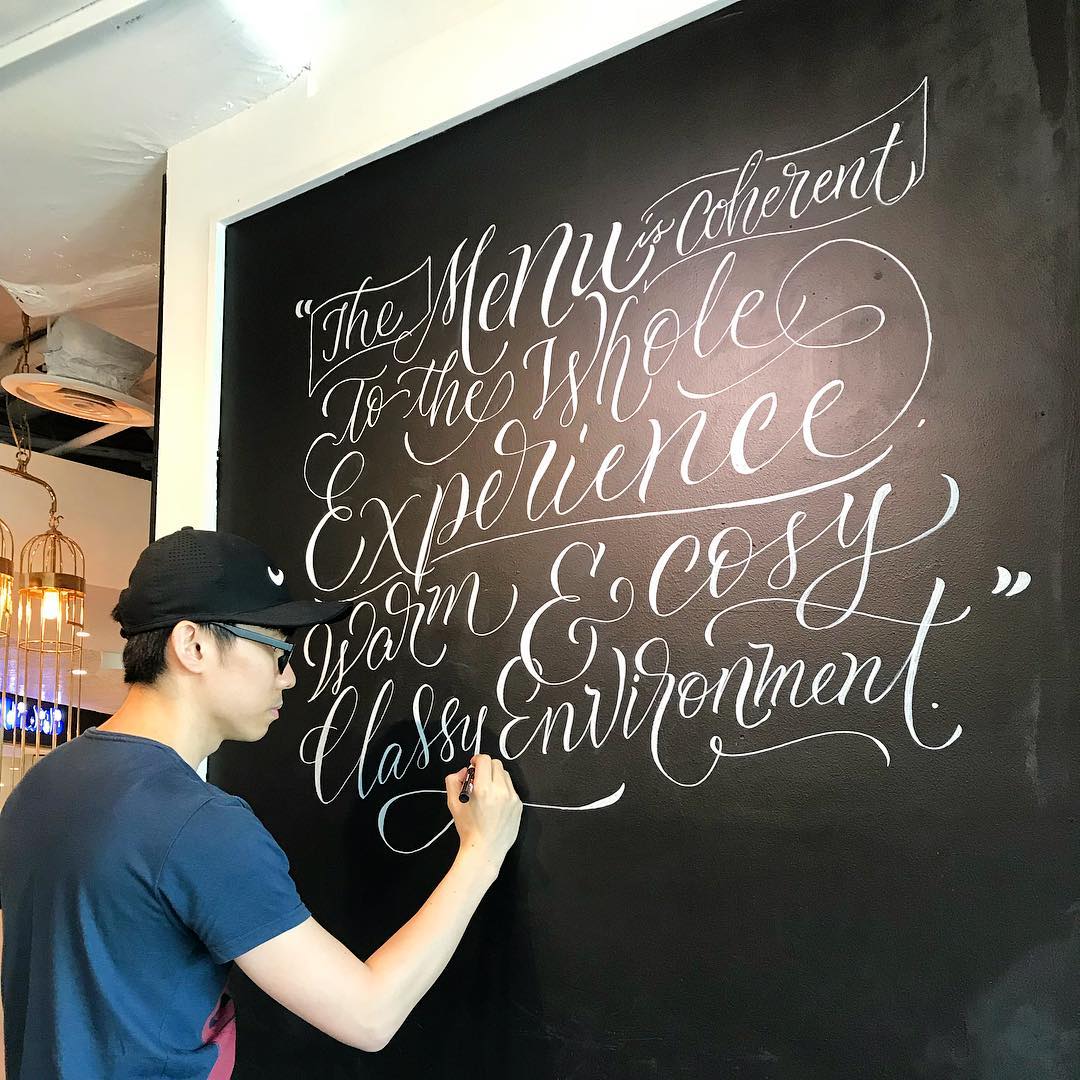 “The Menu is Coherent
To the Whole
Experience.
Warm & Cosy
Classy Environment.”